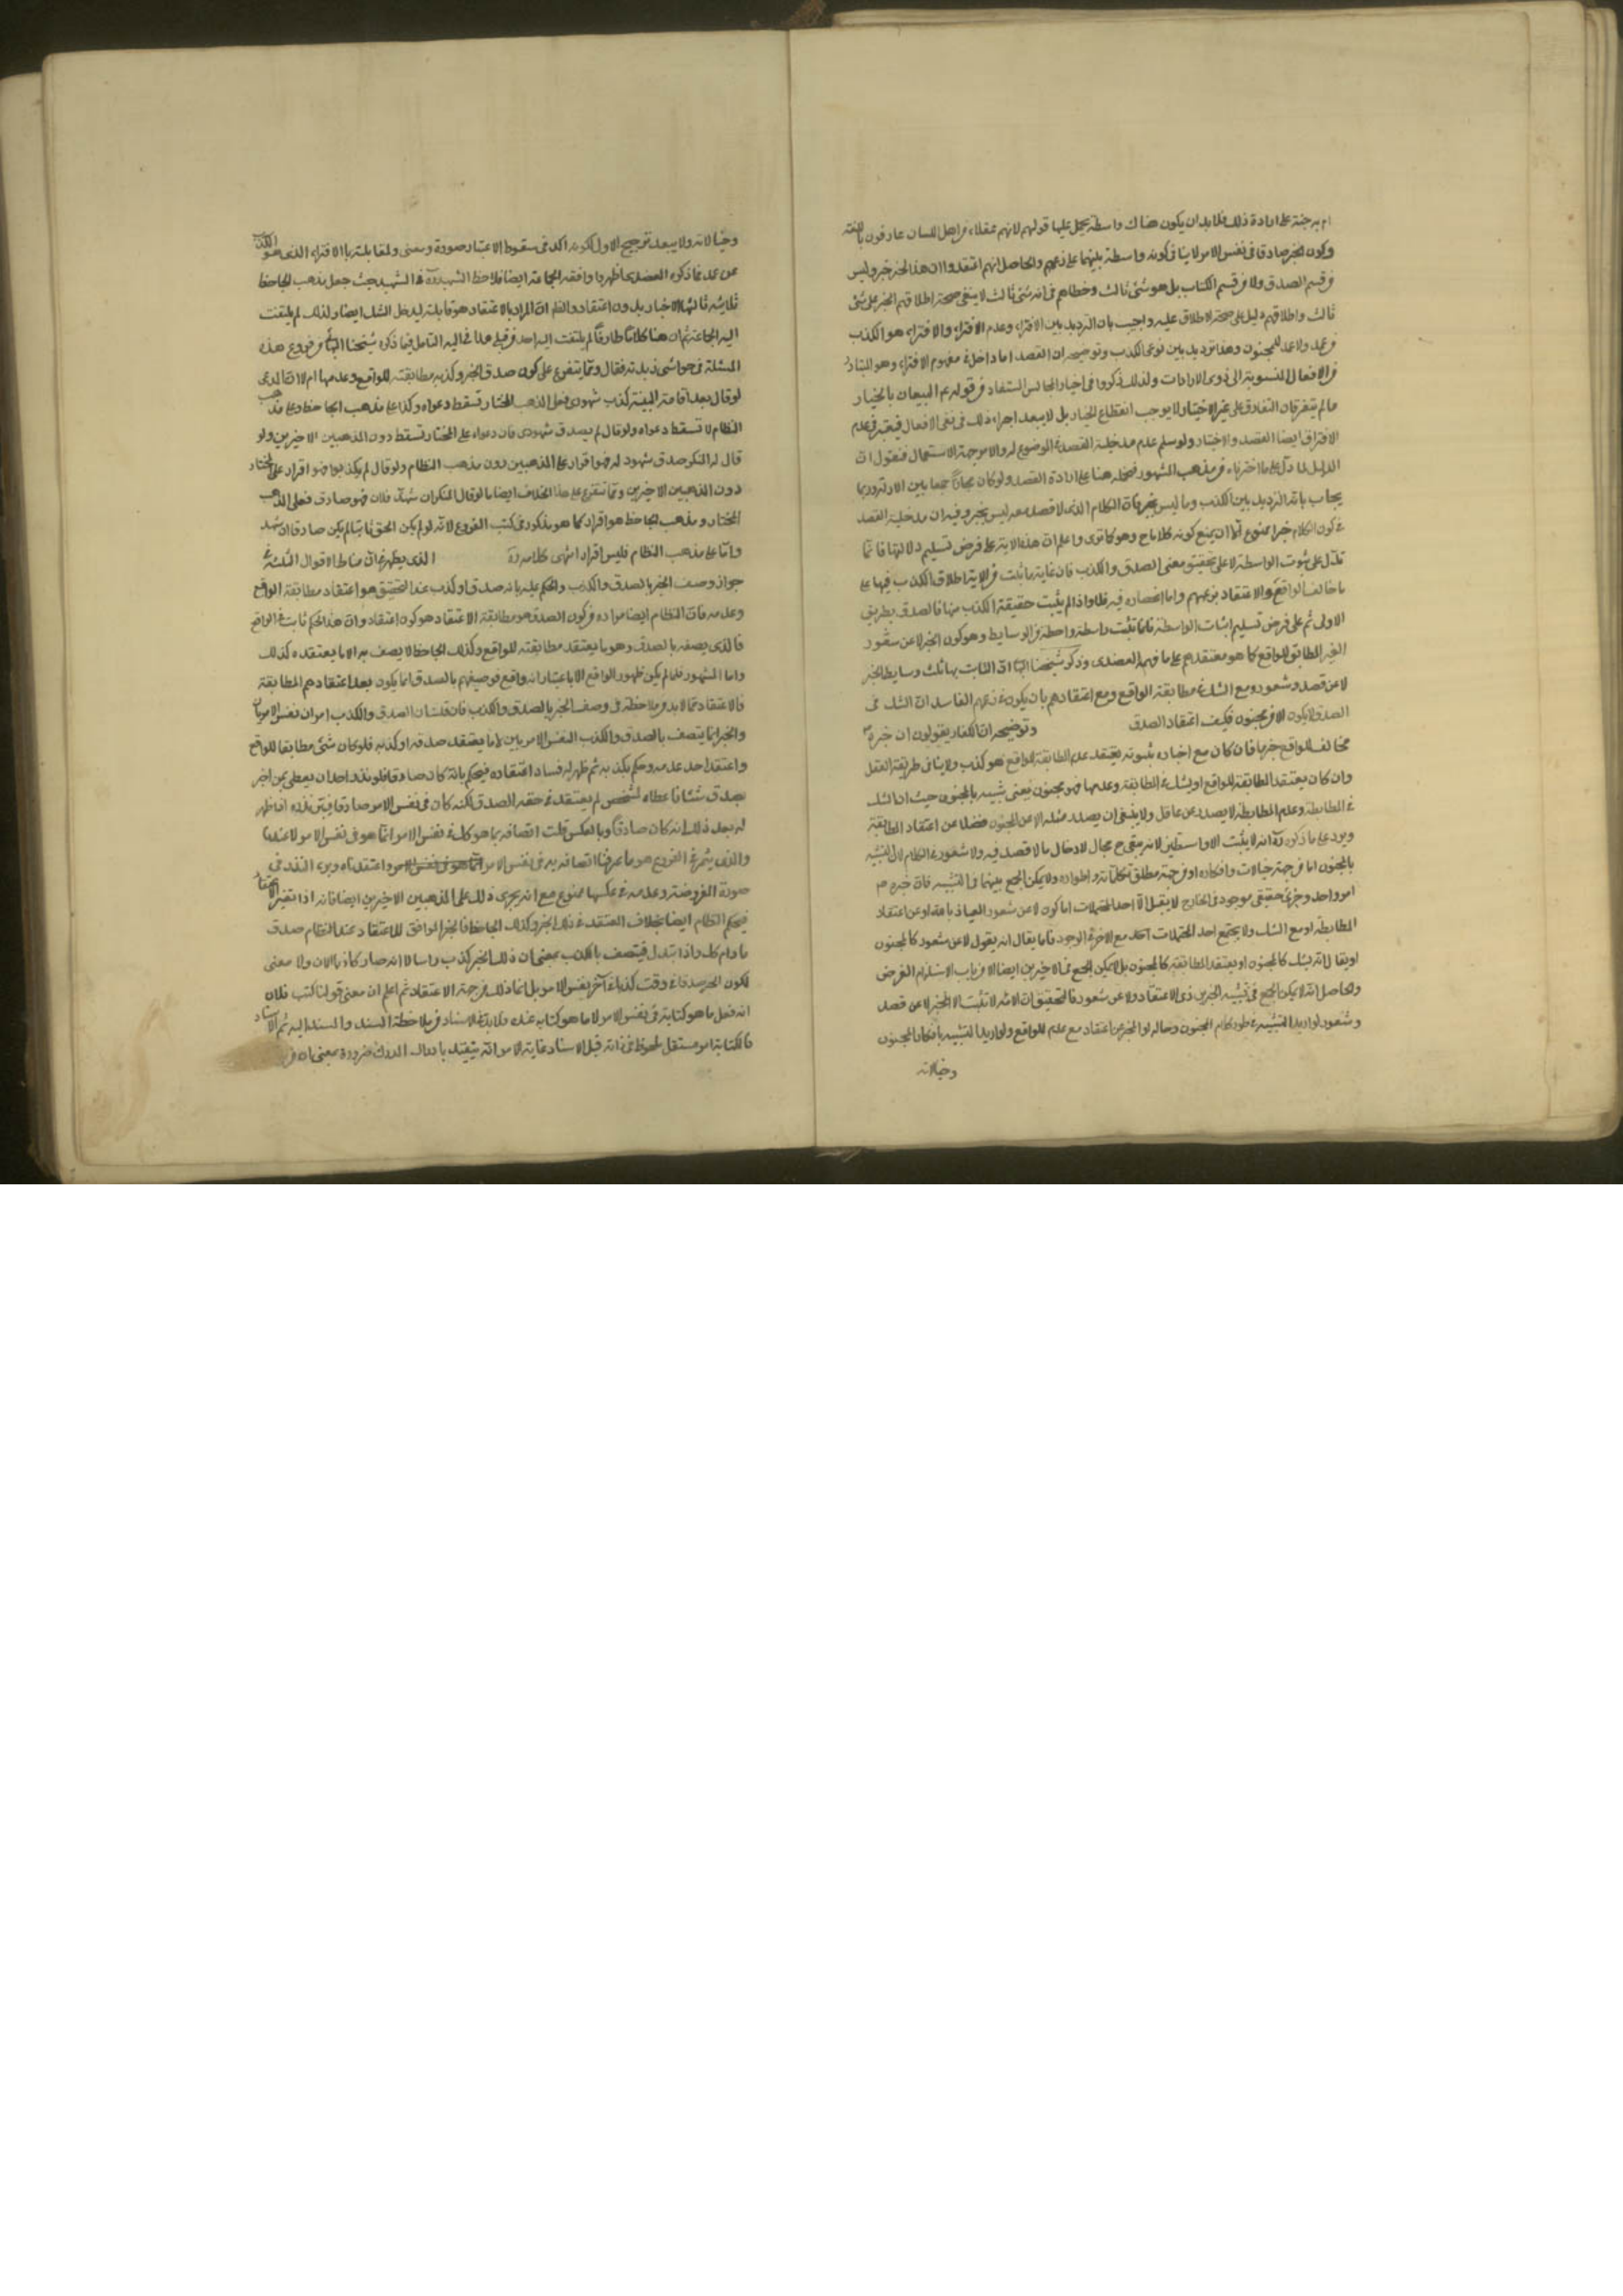 ام به جنة على ارادة ذلك فلا بد ان يكون هناك واسطة يحمل عليها قولهم لانهم عقلاء من اهل اللسان عارفون باللغة
وكون الخبر صادقا في نفس الامر لا ينافي كونه واسطة بينهما على زعمهم والحاصل انهم اعتقدوا ان هذا الخبر خبر وليس
من قسم الصدق ولا من قسم الكذب بل هو شئ ثالث وخطاهم في انه شئ ثالث لا ينفي صحة اطلاقهم الخبر على شئ
ثالث واطلاقهم دليل على صحة الاطلاق عليه واجيب بان الترديد بين الافتراء وعدم الافتراء والافتراء هو الكذب
عن عمد ولا عمد للمجنون وهذا ترديد بين نوعي الكذب وتوضيحه ان القصد اما داخل في مفهوم الافتراء وهو المتبادر
من الافعال المنسوبة الى ذوي الارادات ولذلك ذكروا في اخيار المجالس المستفاد من قوله ع البيعان بالخيار
ما لم يتفرقا ان التفارق على غير الاختيار لا يوجب انقطاع الخيار بل لا يبعد اجراء ذلك في نفي الافعال فيعتبر في عدم
الافتراق ايضا القصد والاختيار ولو سلم عدم مدخلية القصد في الموضوع له والامر جهة الاستعمال فنقول ان
الدليل لما دل على ما اخترناه من مذهب المشهور فيحمل هنا على ارادة القصد ولو كان مجازا جمعا بين الادلة وربما
يجاب بانه الترديد بين الكذب وما ليس بخبر فان الكلام الذي لا قصد معه ليس بخبر وفيه ان مدخلية القصد
في كون الكلام خبرا ممنوع الا ان يمنع كونه كلاما ح وهو كما ترى واعلم ان هذه الاية على فرض تسليم دلالتها فانما
تدل على ثبوت الواسطة لا على تحقيق معنى الصدق والكذب فان غاية ما ثبت من الاية اطلاق الكذب فيها على
ما خالف الواقع والاعتقاد بزعمهم واما انحصاره فيه فلا واذا لم يثبت حقيقة الكذب منها فالصدق بطريق
الاولى ثم على فرض تسليم اثبات الواسطة فانما تثبت واسطة واحدة من الوسايط وهو كون الخبر لا عن شعور
الغير المطابق للواقع كما هو معتقدهم على ما فهمه العضدي وذكر شيخنا البها ان الثابت بها ثلث وسايط الخبر
لا عن قصد وشعور ومع الشك في مطابقة الواقع ومع اعتقادهم بان يكون في زعمهم الفاسد ان الشك في
الصدق لا يكون الا من مجنون فكيف اعتقاد الصدق وتوضيحه ان الكفار يقولون ان خبره ص
مخالف للواقع جزما فان كان مع اخباره بثبوته يعتقد عدم المطابقة للواقع فهو كذب ولا ينافي طريقة العقل
وان كان يعتقد المطابقة للواقع او يشك في المطابقة وعدمها فهو مجنون فيعني تشبيه بالمجنون حيث ان الشك
في المطابقة وعدم المطابقة لا يصدر عن عاقل ولا ينبغي ان يصدر مثله الا عن المجنون فضلا عن اعتقاد المطابقة
ويرد على ما ذكره ره انه لا يثبت الا واسطتين لانه بقي ح مجال لادخال ما لا قصد فيه ولا شعور في الكلام لان التشبيه
بالمجنون اما من جهة خيالاته وافكاره او من جهة مطلق تكلماته واطواره ولا يمكن الجمع بينهما في التشبيه فان خبره ص
امر واحد وجزئي حقيقي موجود في الخارج لا يقبل الا احد المحتملات اما كونه لا عن شعور العياذ بالله او عن اعتقاد
المطابقة او مع الشك ولا يجتمع احد المحتملات آحد مع الاخر في الوجود فاما يقال انه يقول لا عن شعور كالمجنون
او يقال انه يشك كالمجنون او يعتقد المطابقة كالمجنون بل لا يمكن الجمع في الاخيرين ايضا الا من باب الاستلزام الفرضي
والحاصل انه لا يمكن الجمع في تشبيه الخبرين ذي الاعتقاد ولا عن شعور فالتحقيق ان الاية لا تثبت الا الخبر لا عن قصد
وشعور لو اريد التشبيه في طور كلام المجنون وحاله او الخبر عن اعتقاد مع عدم الواقع ولو اريد التشبيه بافكار المجنون
وخيالاته
وخيالاته ولا يبعد ترجيح الاول لكونه اكد في سقوط الاعتبار صورة ومعنى ولمقابلته بالافتراء الذي هو الكذب
عن عمد فما ذكره العضدي اظهر وما وافقه الجماعة ايضا فلاحظ الشهيد ره في التمهيد حيث جعل مذهب الجاحظ
ثلاثية ثالثها الاخبار بدون اعتقاد والظ ان المراد بالاعتقاد هو مقابله ليدخل الشك ايضا ولذلك لم يلتفت
اليه الجماعة ثم ان هنا كلاما طارفا لم يلتفت اليه احد من قبلي هداني اليه التامل فيما ذكره شيخنا البهائي من فروع هذه
المسئلة في حواشي زبدته فقال ومما يتفرع على كون صدق الخبر وكذبه مطابقته للواقع وعدمها ام لا ان المدعي
لو قال بعد اقامة البينة كذب شهودي فعلى المذهب المختار تسقط دعواه وكذا على مذهب الجاحظ وعلى مذهب
النظام لا تسقط دعواه ولو قال لم يصدق شهودي فان دعواه على المختار تسقط دون المذهبين الاخيرين ولو
قال له المنكر صدق شهود له فهو اقرار على المذهبين دون مذهب النظام ولو قال لم يكذبوا فهو اقرار على المختار
دون المذهبين الاخيرين ومما يتفرع على هذا الخلاف ايضا ما لو قال المنكر ان شهد فلان فهو صادق فعلى المذهب
المختار ومذهب الجاحظ هو اقرار كما هو مذكور في كتب الفروع لانه لو لم يكن الحق ثابتا لم يكن صادقا ان شهد
واما على مذهب النظام فليس اقرارا انتهى كلامه ره الذي يظهر منه ان مناط الاقوال الثلثة في
جواز وصف الخبر بالصدق والكذب والحكم عليه بانه صدق او كذب عند التحقيق هو اعتقاد مطابقة الواقع
وعدمه فان النظام ايضا مراده من كون الصدق هو مطابقة الاعتقاد هو كون اعتقاده ان هذا الحكم ثابت في الواقع
فالذي يصفه بالصدق وهو ما يعتقد مطابقته للواقع وكذلك الجاحظ لا يصف به الا ما يعتقده كذلك
واما المشهور فلما لم يكن ظهور الواقع الا باعتبار انه واقع فوصفهم بالصدق انما يكون بعد اعتقادهم المطابقة
فالاعتقاد مما لا بد من ملاحظته في وصف الخبر بالصدق والكذب فان قلت ان الصدق والكذب امران نفس الامريان
والخبر انما يتصف بالصدق والكذب النفس الامريين لا ما يعتقد صدقه او كذبه فلو كان شئ مطابقا للواقع
واعتقد احد عدمه وحكم بكذبه ثم ظهر له فساد اعتقاده فيحكم بانه كان صادقا فلو نذر احد ان يعطي من اخبر
بصدق شيئا فاعطاه لشخص لم يعتقد في حقه الصدق لكنه كان في نفس الامر صادقا فيبرئ نذره اذا ظهر
له بعد ذلك انه كان صادقا وبالعكس قلت اتصافه بما هو كذلك في نفس الامر انما هو في نفس الامر لا عندنا
والذي يثمر في الفروع هو ما عرفنا اتصافه به في نفس الامر واعتقدناه وبرء النذر في
صورة المفروضة وعدمه في عكسها ممنوع مع انه يجري ذلك على المذهبين الاخيرين ايضا فانه اذا تغير الاعتقاد
فيحكم النظام ايضا بخلاف المعتقد في ذلك الخبر وكذلك الجاحظ فالخبر الموافق للاعتقاد عند النظام صدق
ما دام كذلك واذا تبدل فيتصف بالكذب بمعنى ان ذلك الخبر كذب راسا لا انه صار كاذبا الان ولا معنى
لكون الخبر صدقا في وقت كذبا في آخر بنفس الامر بل انما ذلك من جهة الاعتقاد ثم اعلم ان معنى قولنا كتب فلان
انه فعل ما هو كتابة في نفس الامر لا ما هو كتابة عنده ولا بد في الاسناد من ملاحظة المسند والمسند اليه ثم الاسناد
فالكتابة امر مستقل ملحوظ في ذاته قبل الاسناد غاية الامر انه يتقيد بادراك المدرك ضرورة بمعنى